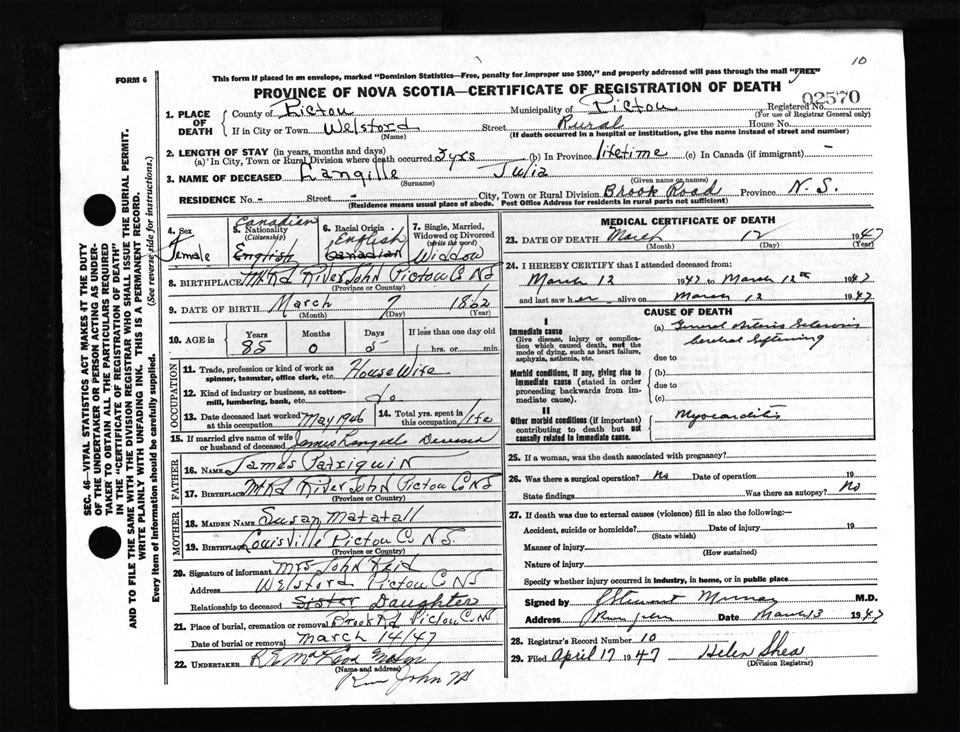 10
This form if placed in an envelope, marked "Dominion Statistics—Free, penalty for improper use $300," and properly addressed will pass through the mail "FREE"
FORM 6
PROVINCE OF NOVA SCOTIA—CERTIFICATE OF REGISTRATION OF DEATH
02570
1. PLACE OF DEATH
County of Pictou Municipality of Pictou Registered No.
(For use of Registrar General only)
If in City or Town Welsford Street Rural House No.
(Name) (If death occurred in a hospital or institution, give the name instead of street and number)
2. LENGTH OF STAY (in years, months and days)
(a) In City, Town or Rural Division where death occurred 3 yrs (b) In Province lifetime (c) In Canada (if immigrant) -
3. NAME OF DECEASED Langille Julia
(Surname) (Given name or names)
RESIDENCE No. - Street - City, Town or Rural Division Brook Road Province N. S.
(Residence means usual place of abode. Post Office Address for residents in rural parts not sufficient)
4. Sex Female
5. Nationality (Citizenship) Canadian English
6. Racial Origin English Canadian
7. Single, Married, Widowed or Divorced (write the word) Widdow
8. BIRTHPLACE Mt Rd River John Pictou Co NS
(Province or Country)
9. DATE OF BIRTH March 7 1862
(Month) (Day) (Year)
10. AGE in Years Months Days If less than one day old
85 0 5 hrs. or min.
OCCUPATION
11. Trade, profession or kind of work as spinner, teamster, office clerk, etc. House Wife
12. Kind of industry or business, as cotton-mill, lumbering, bank, etc. do
13. Date deceased last worked at this occupation May 1946
14. Total yrs. spent in this occupation life
15. If married give name of wife or husband of deceased James Langille Deceased
FATHER
16. NAME James Patriquin
17. BIRTHPLACE Mt Rd River John Pictou Co NS
(Province or Country)
MOTHER
18. MAIDEN NAME Susan Matatall
19. BIRTHPLACE Louisville Pictou Co N.S.
(Province or Country)
20. Signature of informant Mrs John Reid
Address Welsford Pictou C NS
Relationship to deceased Sister Daughter
21. Place of burial, cremation or removal Brook Rd Pictou Co NS
Date of burial or removal March 14/47
22. UNDERTAKER
(Name and address)
River John NS
MEDICAL CERTIFICATE OF DEATH
23. DATE OF DEATH March 12 1947
(Month) (Day) (Year)
24. I HEREBY CERTIFY that I attended deceased from:
March 12 1947 to March 12th 1947
and last saw her alive on March 12 1947
CAUSE OF DEATH
I
Immediate cause
Give disease, injury or complication which caused death, not the mode of dying, such as heart failure, asphyxia, asthenia, etc.
(a) General Arterio Sclerosis
Cerebral Softening
due to
Morbid conditions, if any, giving rise to immediate cause (stated in order proceeding backwards from immediate cause).
(b)
due to
(c)
II
Other morbid conditions (if important) contributing to death but not causally related to immediate cause.
Myocarditis
25. If a woman, was the death associated with pregnancy?
26. Was there a surgical operation? No Date of operation 19
State findings Was there an autopsy? No
27. If death was due to external causes (violence) fill in also the following:—
Accident, suicide or homicide? Date of injury 19
(State which)
Manner of injury
(How sustained)
Nature of injury
Specify whether injury occurred in industry, in home, or in public place
Signed by J Stewart Murray M.D.
Address River John Date March 13 1947
28. Registrar's Record Number 10
29. Filed April 17 1947 Helen Shea
(Division Registrar)
SEC. 46—VITAL STATISTICS ACT MAKES IT THE DUTY
OF THE UNDERTAKER OR PERSON ACTING AS UNDERTAKER TO OBTAIN ALL THE PARTICULARS REQUIRED
IN THE "CERTIFICATE OF REGISTRATION OF DEATH"
AND TO FILE THE SAME WITH THE DIVISION REGISTRAR WHO SHALL ISSUE THE BURIAL PERMIT.
WRITE PLAINLY WITH UNFADING INK. THIS IS A PERMANENT RECORD.
Every item of Information should be carefully supplied. (See reverse side for instructions.)